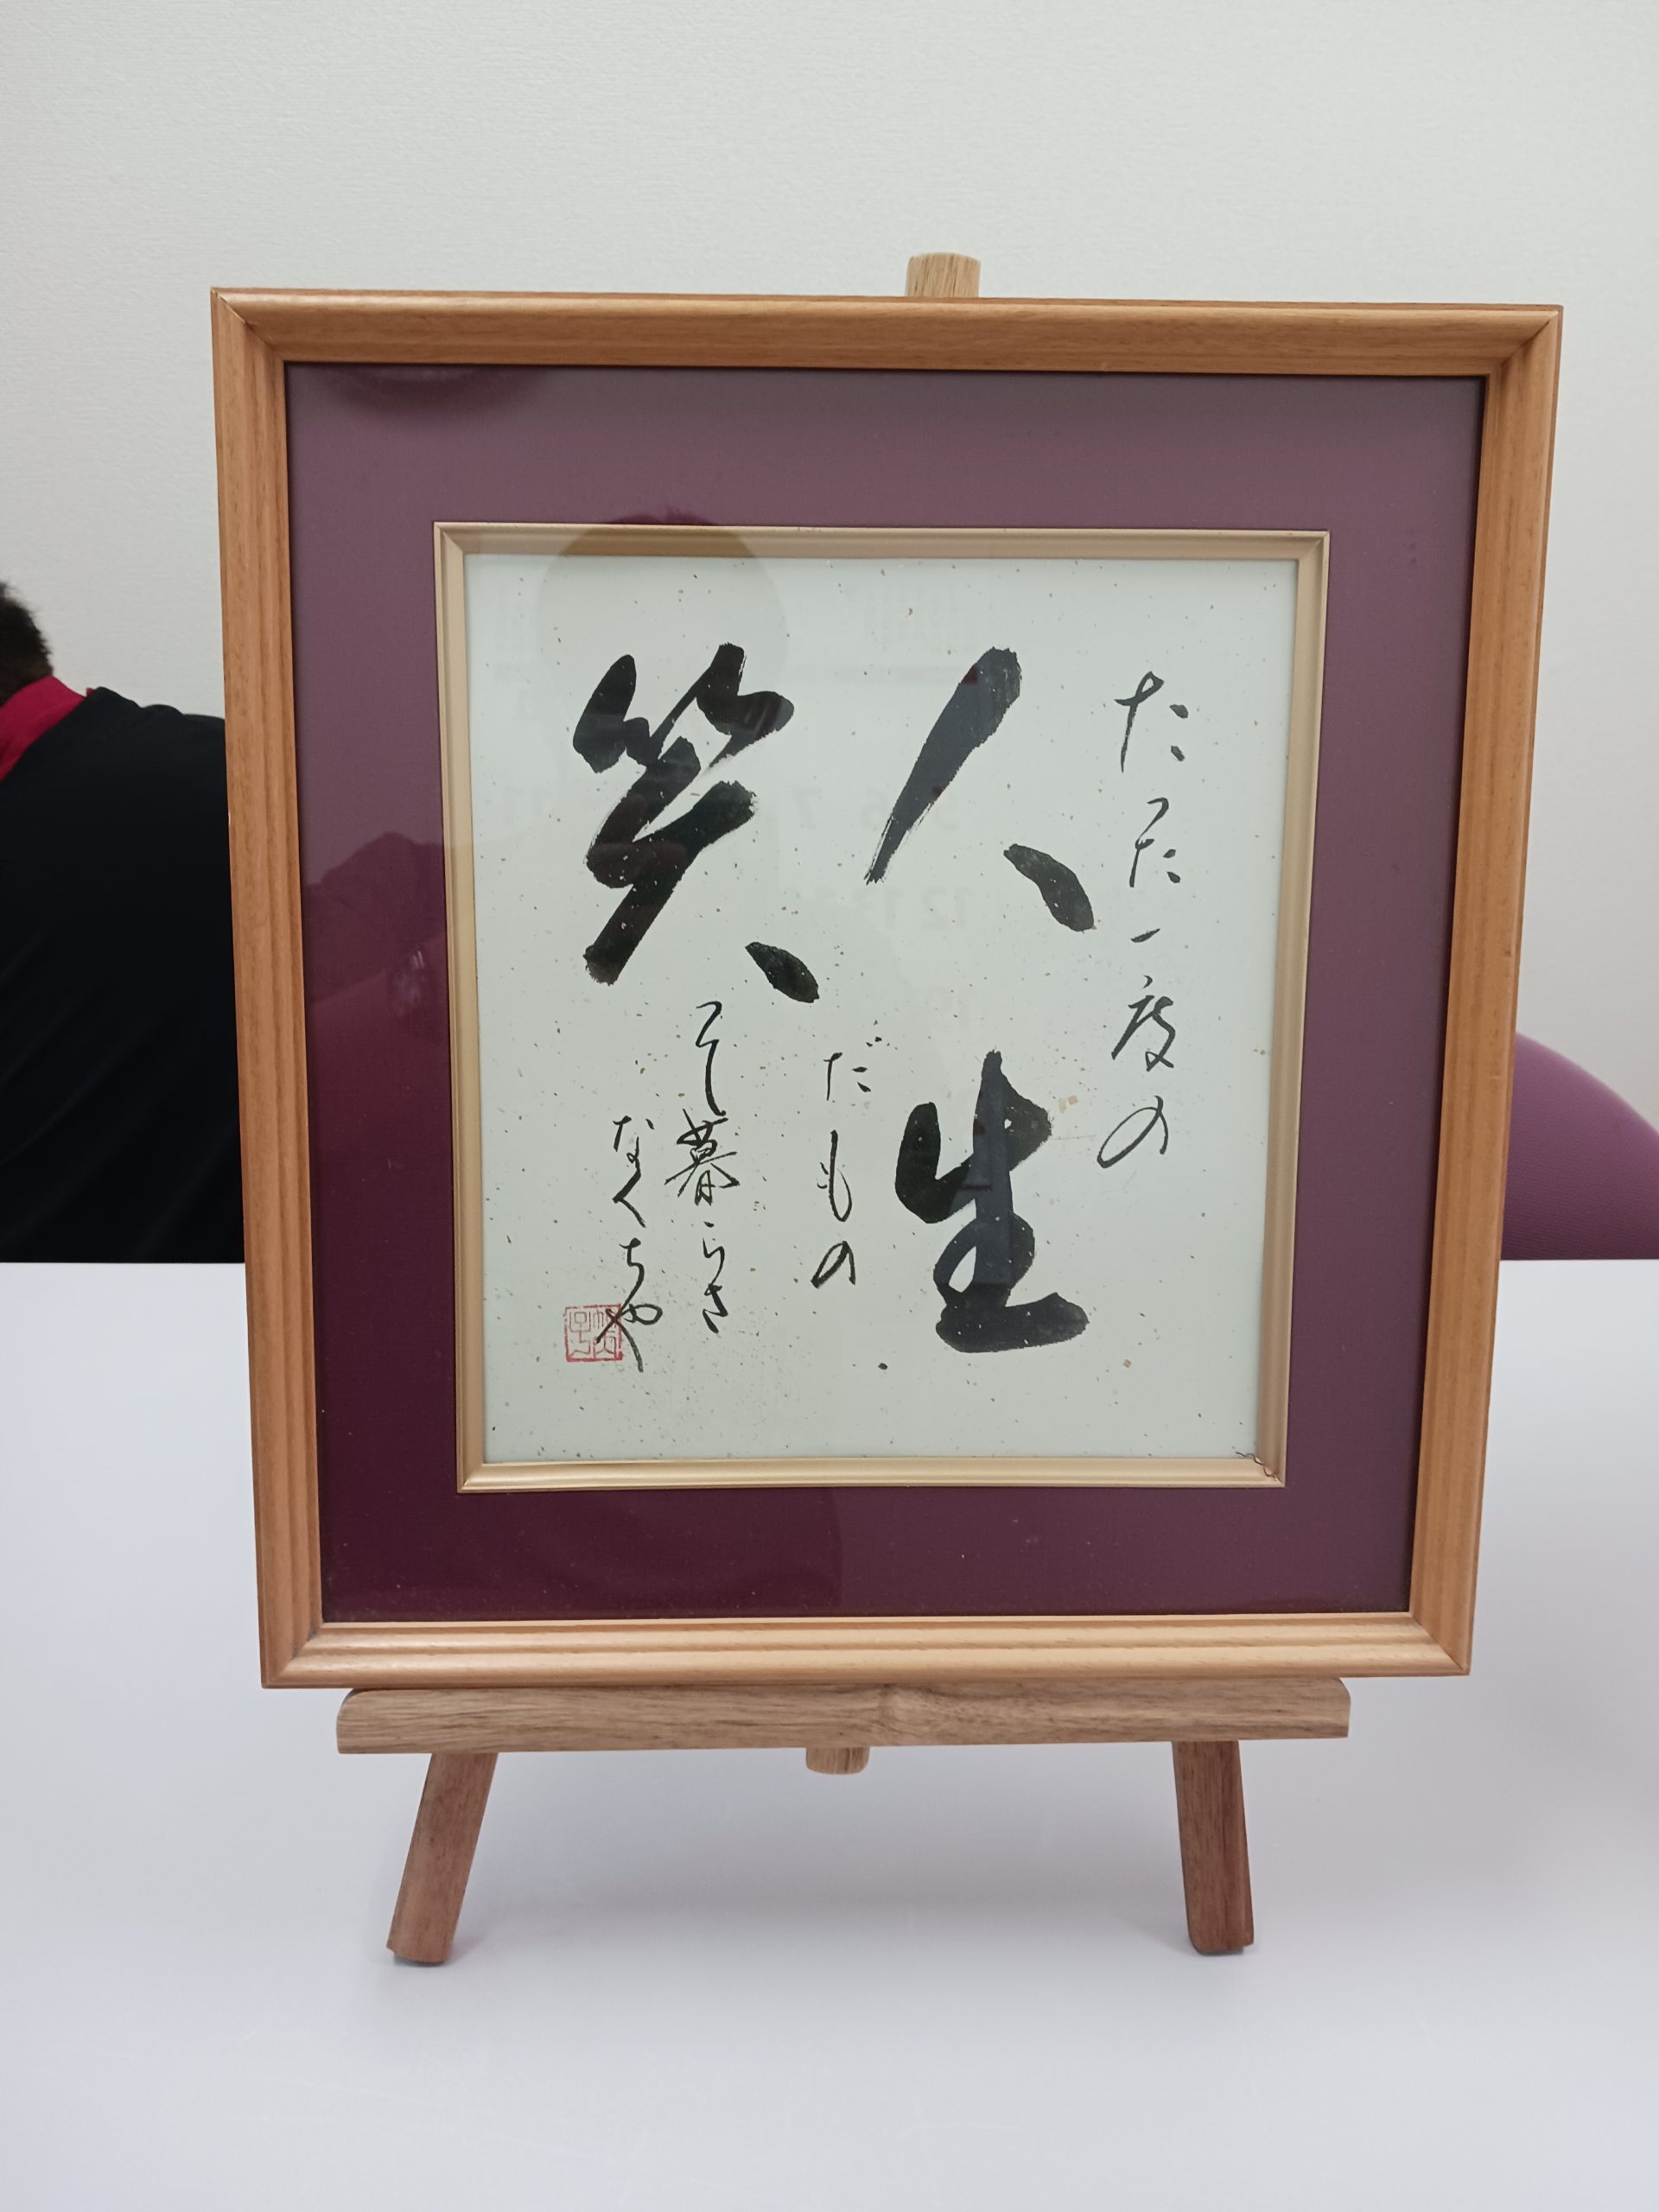 たった一度の
人生
だもの
笑
って暮らさ
なくちゃ